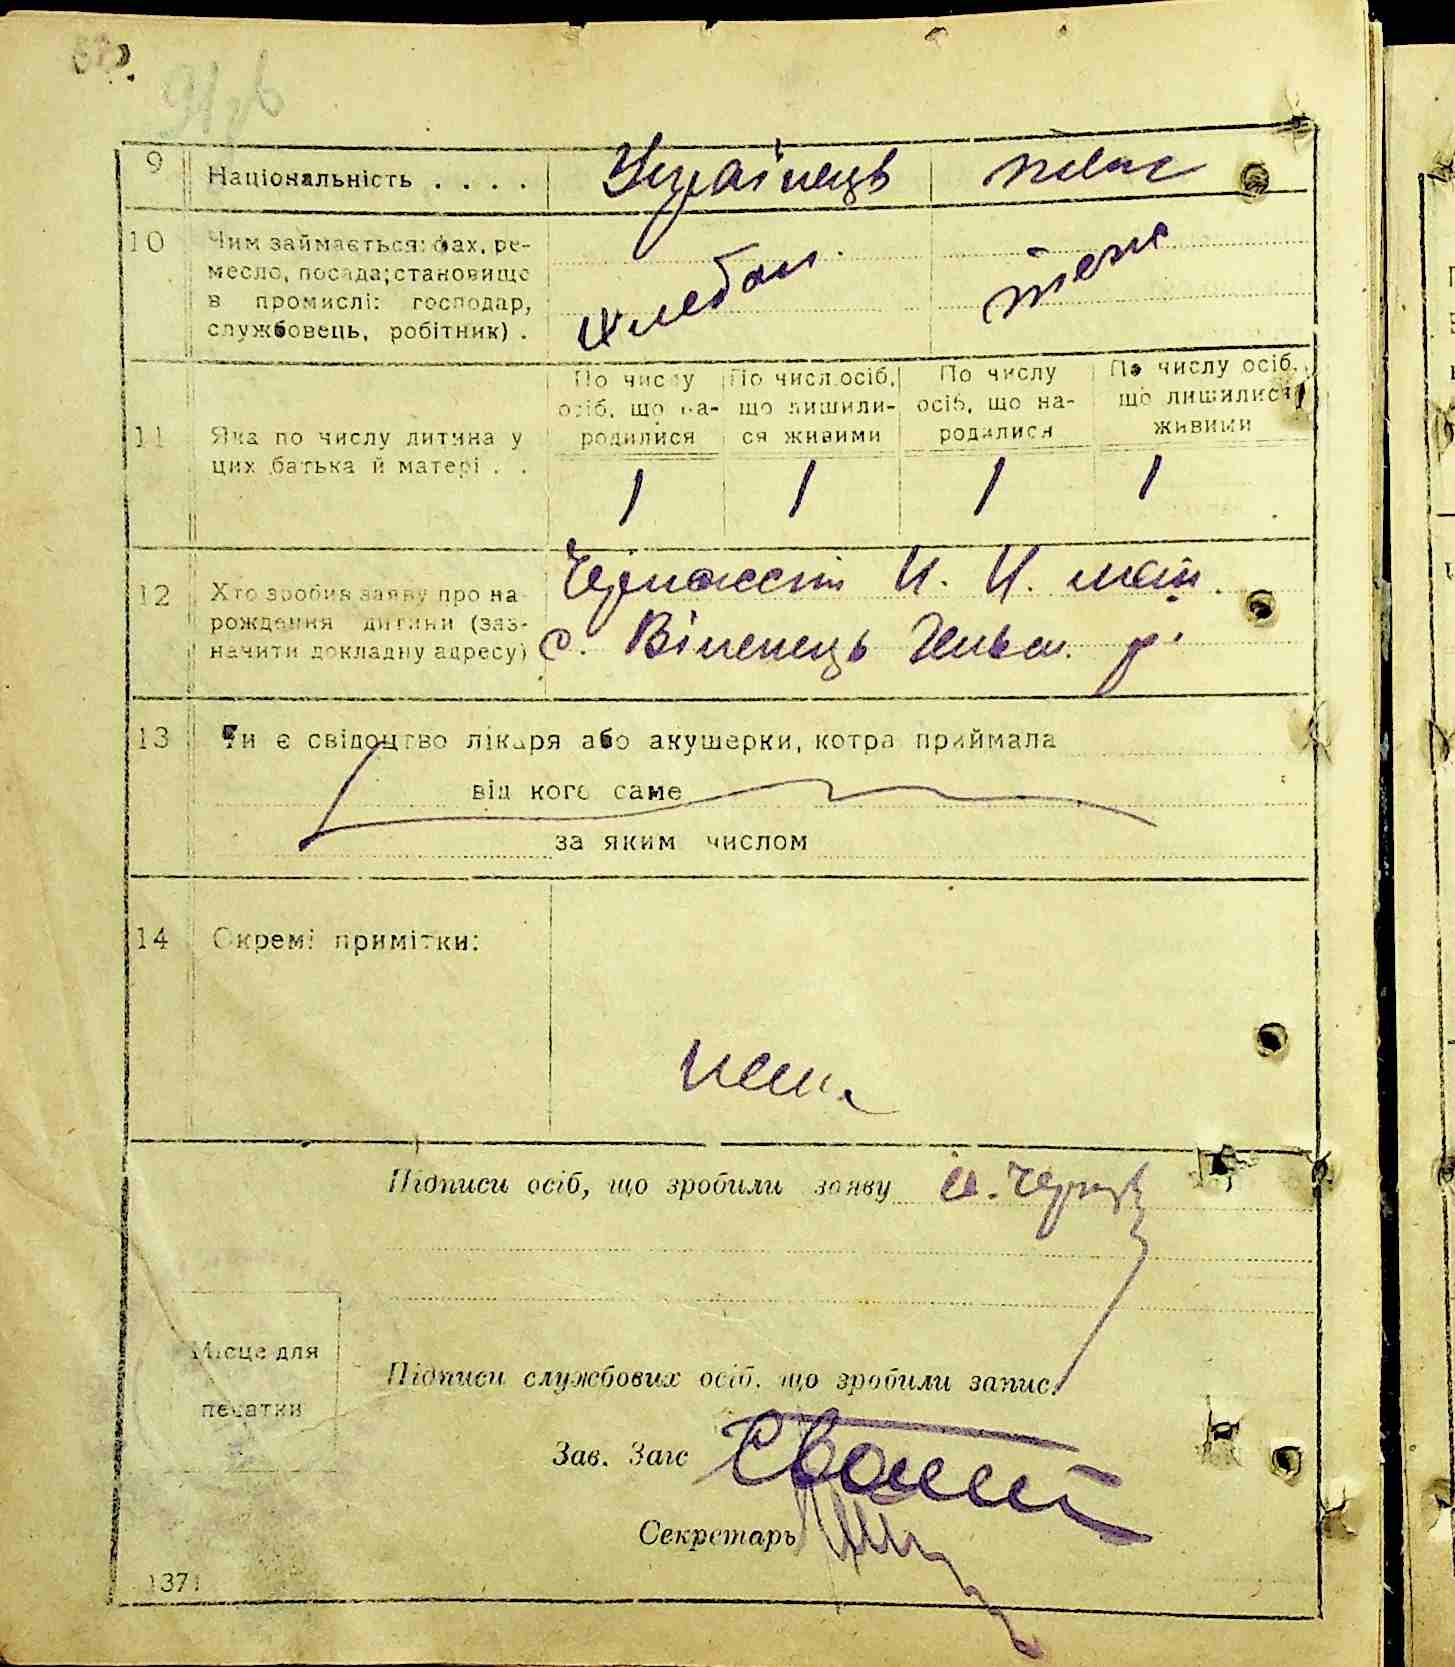 9 Національність . . . . Українець теж
10 Чим займається: фах, ре-
месло, посада; становище
в промислі: господар,
службовець, робітник) .
хлебоп. теж
По числу осіб, що на-родилися
По числ. осіб, що лишили-ся живими
По числу осіб, що на-родилися
По числу осіб, що лишилися живими
11 Яка по числу дитина у
цих батька й матері . .
1 1 1 1
12 Хто зробив заяву про на-
рождення дитини (заз-
начити докладну адресу)
И. И.
с. р.
13 Чи є свідоцтво лікаря або акушерки, котра приймала
від кого саме
за яким числом
14 Окремі примітки:
нема
Підписи осіб, що зробили заяву
Місце для
печатки
Підписи службових осіб, що зробили запис.
Зав. Загс
Секретарь
1371